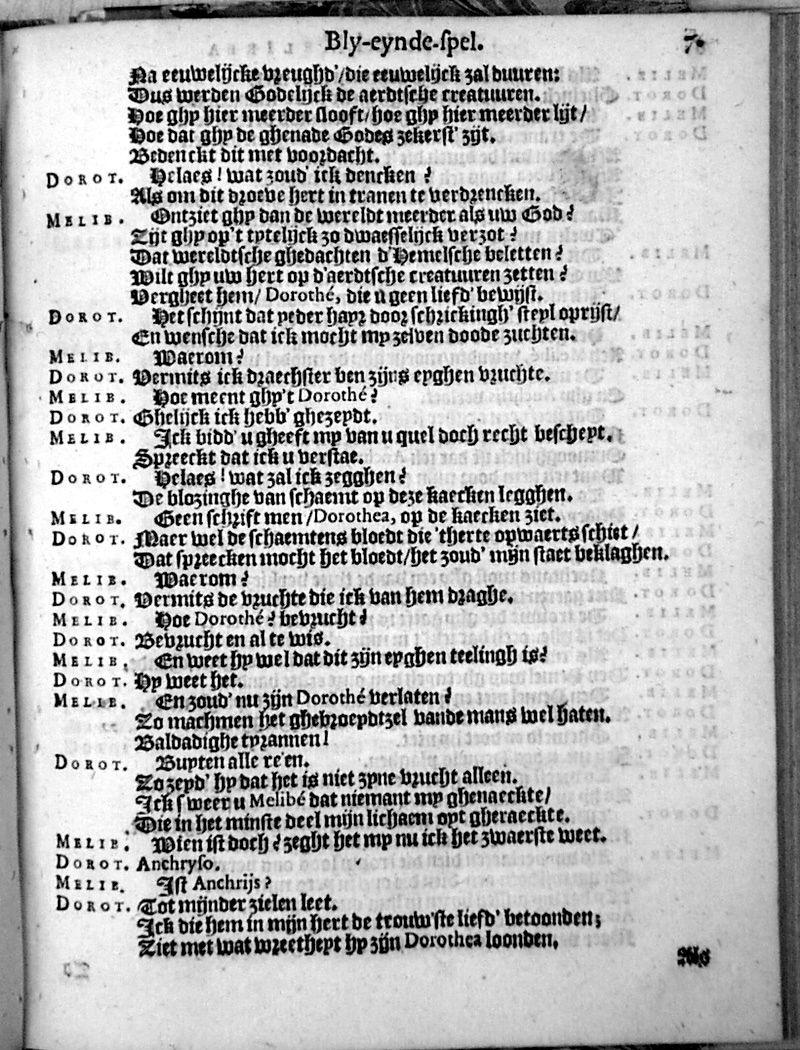 Bly-eynde-spel. 7.
Na eeuwelijcke vreughd'/die eeuwelijck zal duuren:
Dus werden Godelijck de aerdtsche creatuuren.
Hoe ghy hier meerder slooft/hoe ghy hier meerder lijt/
Hoe dat ghy de ghenade Godes zekerst' zijt.
Bedenckt dit met voordacht.
DOROT. Helaes! wat zoud' ick dencken?
Als om dit droeve hert in tranen te verdrencken.
MELIB. Ontziet ghy dan de wereldt meerder als uw God?
Zijt ghy op't tytelijck zo dwaesselijck verzot?
Dat wereldtsche ghedachten d'Hemelsche beletten?
Wilt ghy uw hert op d'aerdtsche creatuuren zetten?
Vergheet hem/ Dorothé, die u geen liefd' bewijst.
DOROT. Het schijnt dat yeder hayr door schrickingh' steyl oprijst/
En wensche dat ick mocht my zelven doode zuchten.
MELIB. Waerom?
DOROT. Vermits ick draechster ben zijns eyghen vruchte.
MELIB. Hoe meent ghy't Dorothé?
DOROT. Ghelijck ick hebb' ghezeydt.
MELIB. Ick bidd' u gheeft my van u quel doch recht bescheyt.
Spreeckt dat ick u verstae.
DOROT. Helaes! wat zal ick zegghen?
De blozinghe van schaemt op deze kaecken legghen.
MELIB. Geen schrift men/Dorothea, op de kaecken ziet.
DOROT. Maer wel de schaemtens bloedt die 'therte opwaerts schiet/
Dat spreecken mocht het bloedt/het zoud' mijn staet beklaghen.
MELIB. Waerom?
DOROT. Vermits de vruchte die ick van hem draghe.
MELIB. Hoe Dorothé? bevrucht?
DOROT. Bevrucht en al te wis.
MELIB. En weet hy wel dat dit zijn eyghen teelingh is?
DOROT. Hy weet het.
MELIB. En zoud' nu zijn Dorothé verlaten?
Zo machmen het ghebroeydtzel vande mans wel haten.
Baldadighe tyrannen!
DOROT. Buyten alle re'en.
Zo zeyd' hy dat het is niet zyne vrucht alleen.
Ick sweer u Melibé dat niemant my ghenaeckte/
Die in het minste deel mijn lichaem oyt gheraeckte.
MELIB. Wien ist doch? zeght het my nu ick het zwaerste weet.
DOROT. Anchryso.
MELIB. Ist Anchrijs?
DOROT. Tot mijnder zielen leet.
Ick die hem in mijn hert de trouw'ste liefd' betoonden;
Ziet met wat wreetheyt hy zijn Dorothea loonden.
Als